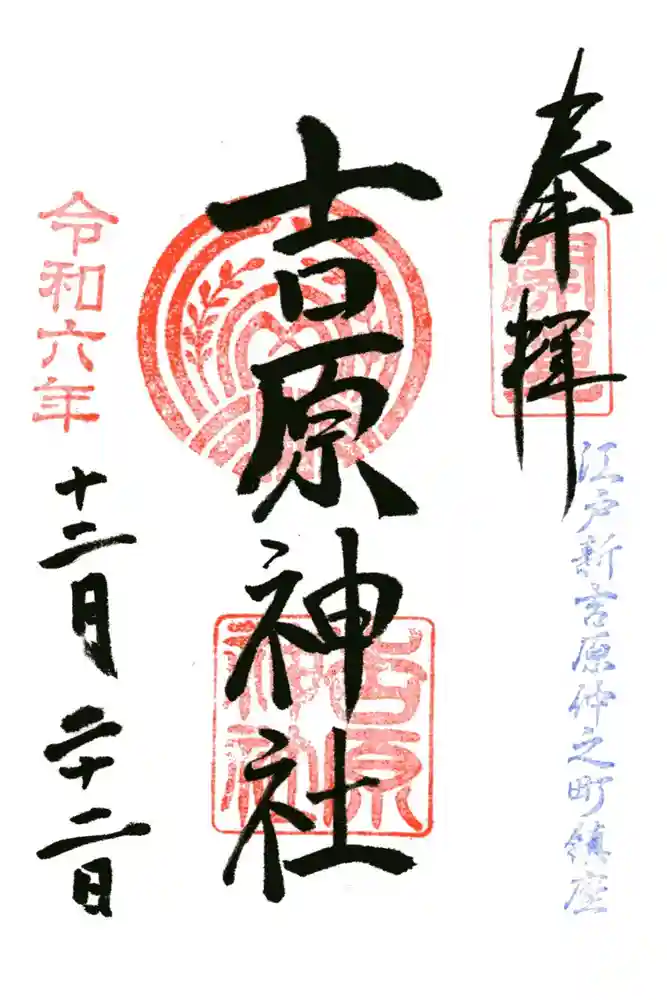 奉拝
開運
江戸新吉原仲之町鎮座
吉原神社
吉原
神社
令和六年
十二月二十二日